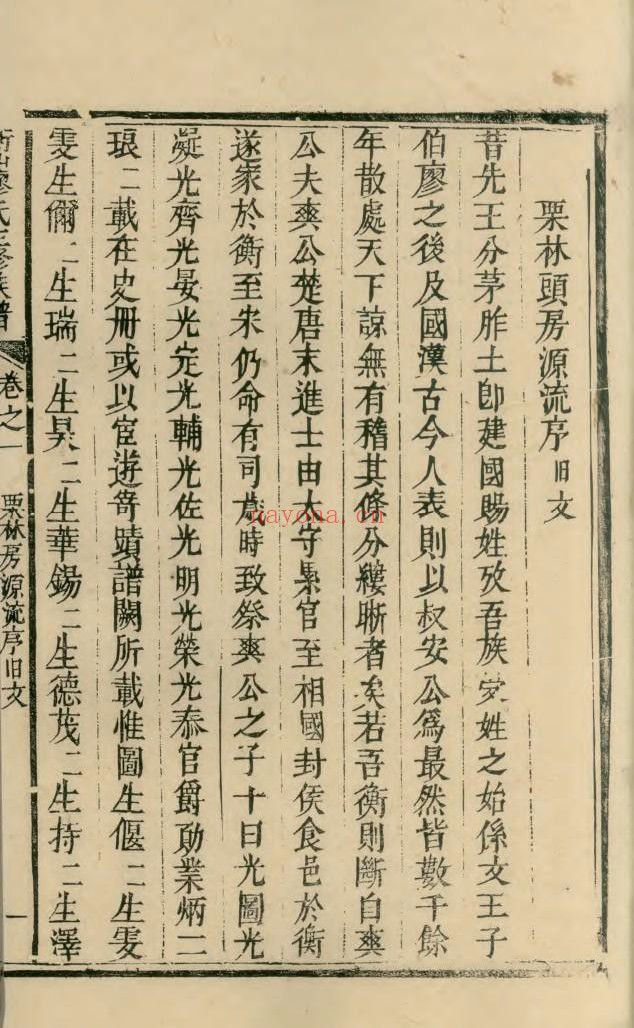 栗林頭房源流序旧文
昔先王分茅胙土即建國賜姓攷吾族受姓之始係文王子
伯廖之後及國漢古今人表則以叔安公爲最然皆數千餘
年散處天下諒無有稽其條分縷晰者矣若吾衡則斷自爽
公夫爽公楚唐末進士由太守累官至相國封侯食邑於衡
遂家於衡至宋仍命有司歲時致祭爽公之子十曰光圖光
凝光齊光晏光定光輔光佐光明光榮光泰官爵勛業炳二
琅二載在史册或以宦遊寄蹟譜闕所載惟圖生偃二生雯
雯生儞二生瑞二生昊二生華錫二生德茂二生持二生澤
衡山廖氏修族譜
卷之一
栗林房源流序旧文
一
nayona.cn